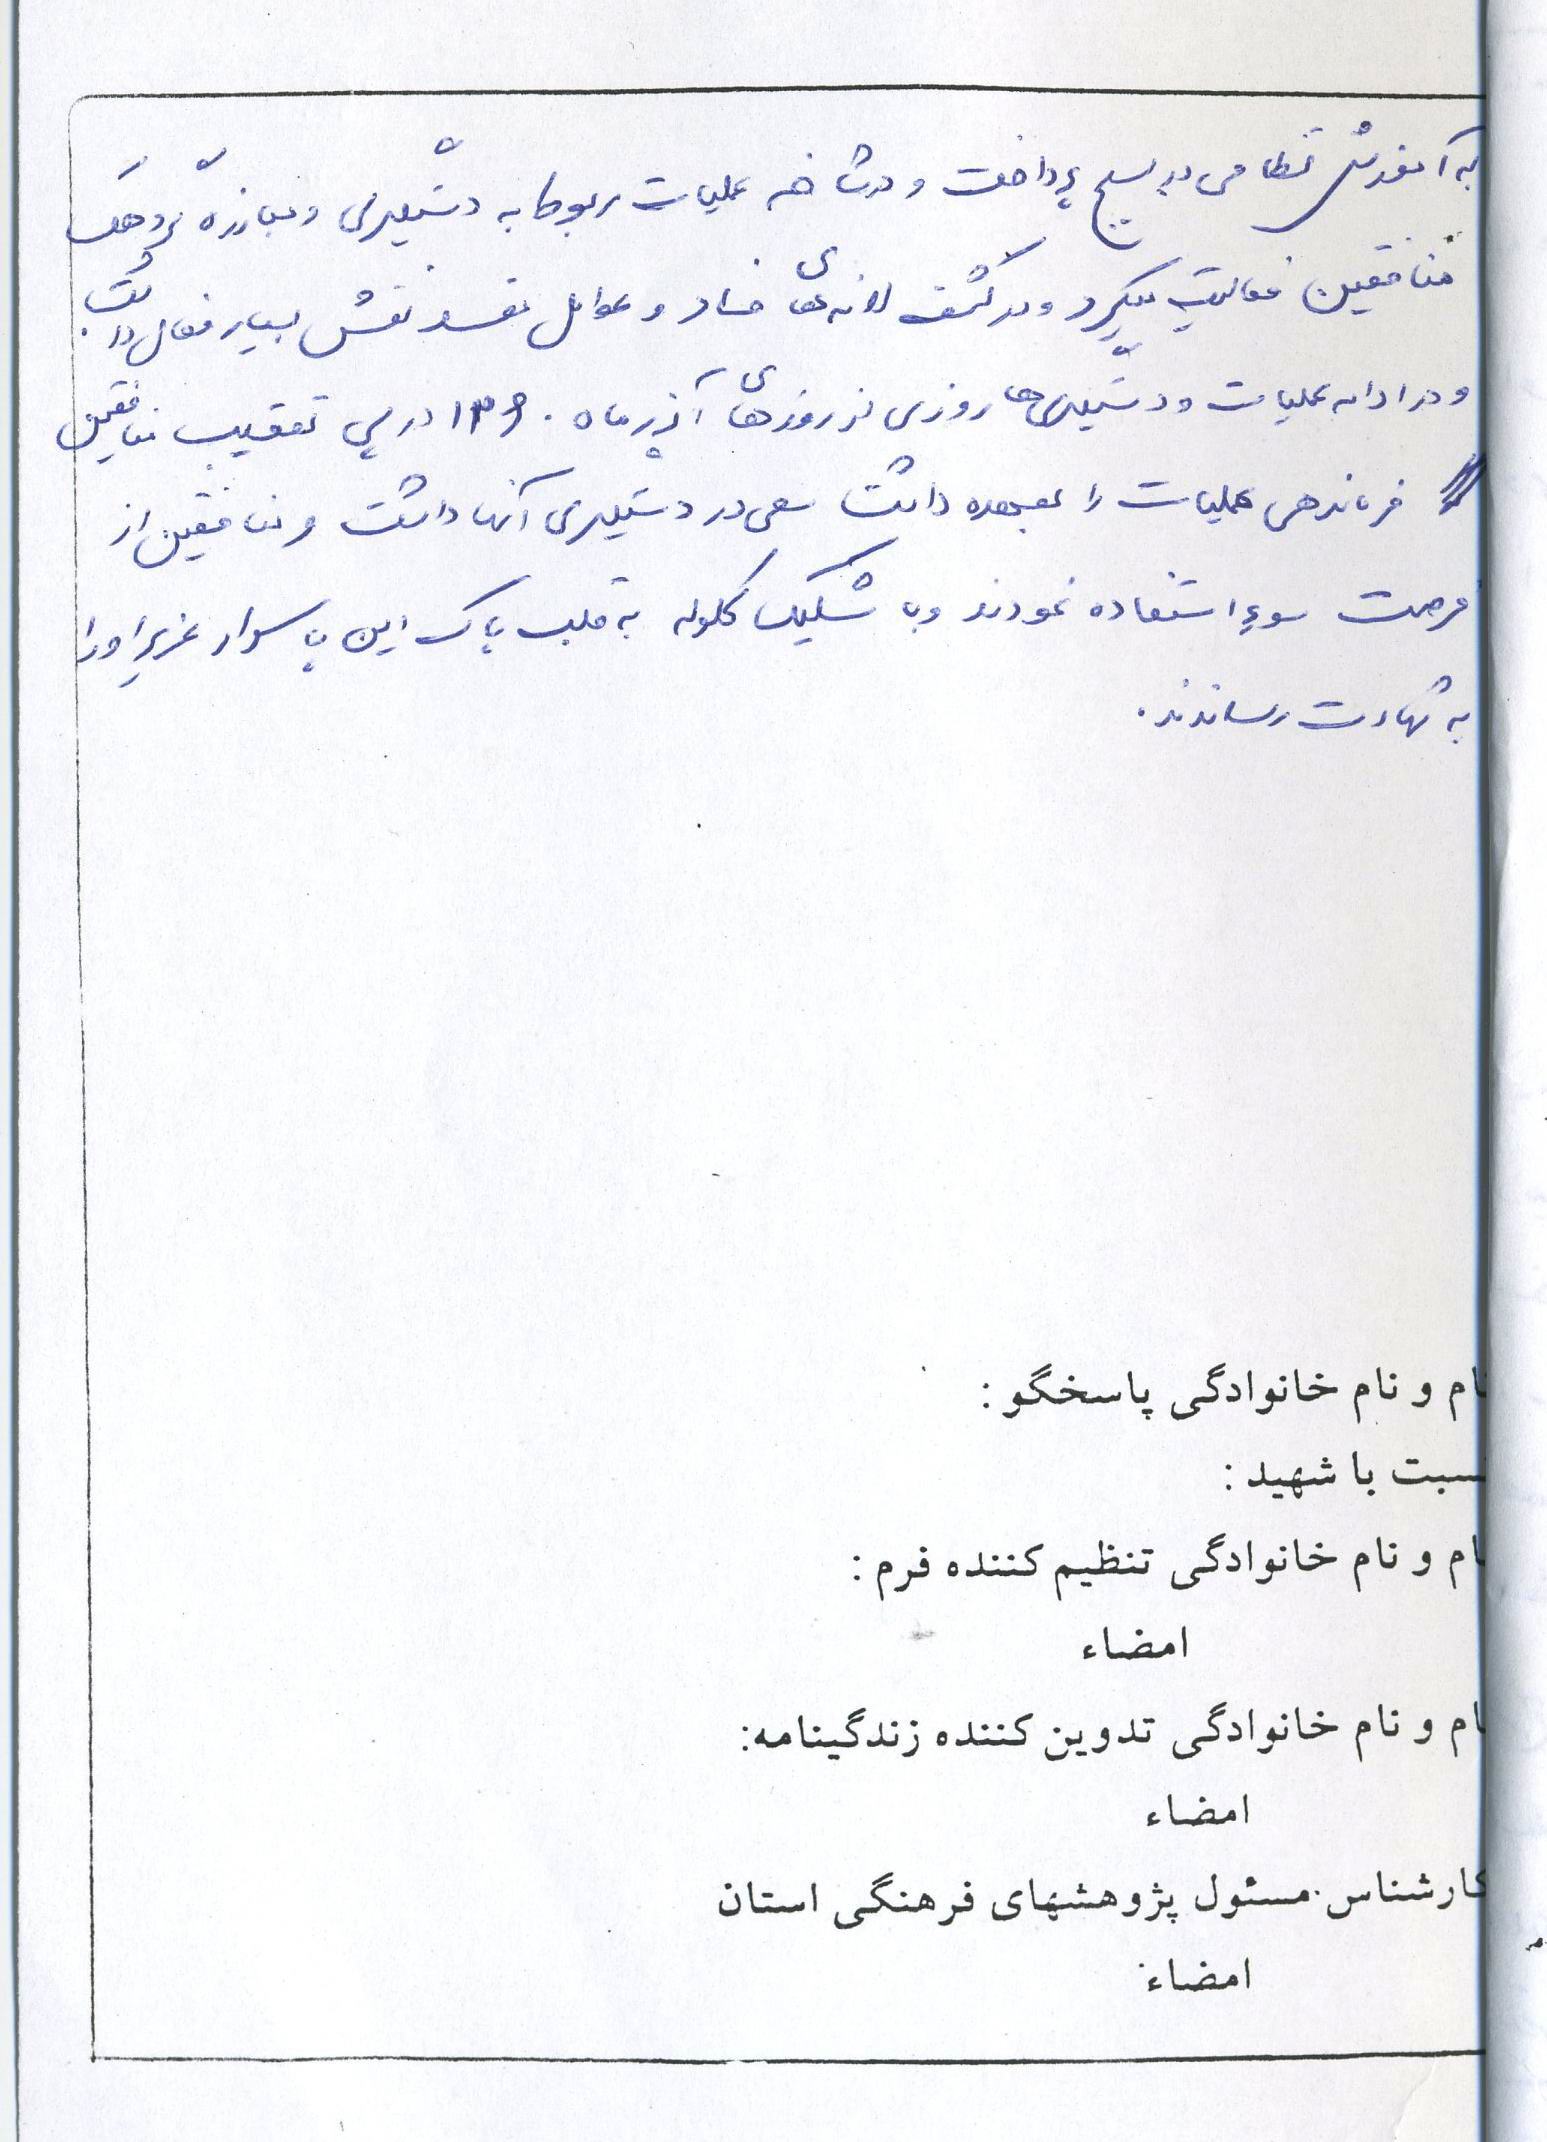 به آموزش نظامی در بسیج پرداخت و در شاخه عملیات مربوط به دستگیری و مبارزه بر وعلیه
منافقین فعالیت میکرد و در کشف لانه های فساد و عوامل مفسد نقش بسیار فعال داشت.
و در ادامه عملیات و دستگیریها روزی از روزهای آذر ماه ۱۳۶۰ در پی تعقیب منافقین
فرماندهی عملیات را بعهده داشت سعی در دستگیری آنها داشت و منافقین از
فرصت سوء استفاده نمودند و با شلیک گلوله به قلب پاک این پاسدار عزیز او را
به شهادت رساندند.
نام و نام خانوادگی پاسخگو :
نسبت با شهید :
نام و نام خانوادگی تنظیم کننده فرم :
امضاء
نام و نام خانوادگی تدوین کننده زندگینامه:
امضاء
کارشناس مسئول پژوهشهای فرهنگی استان
امضاء